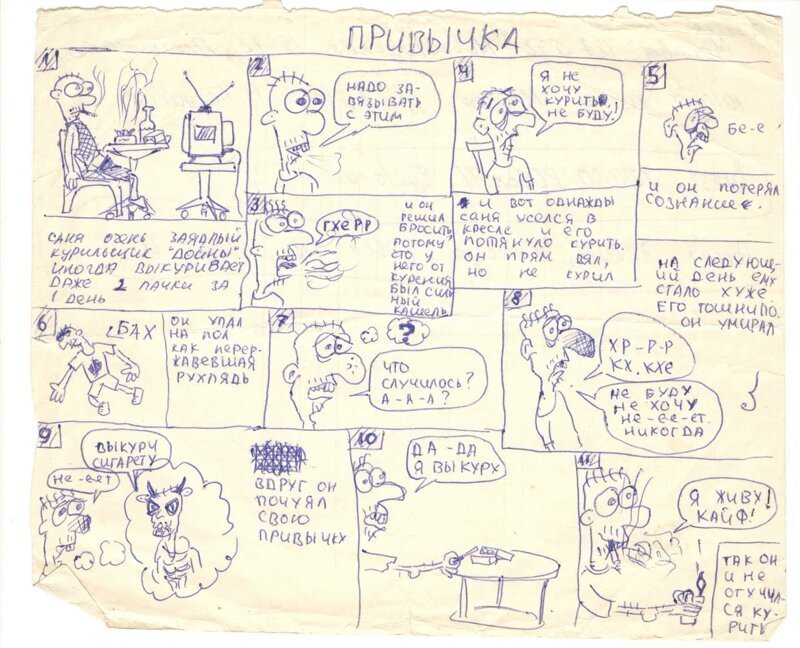 ПРИВЫЧКА
1
САНЯ ОЧЕНЬ ЗАЯДЛЫЙ
КУРИЛЬЩИК "ДОЙНЫ"
ИНОГДА ВЫКУРИВАЕТ
ДАЖЕ 2 ПАЧКИ ЗА
1 ДЕНЬ
2
НАДО ЗА-
ВЯЗЫВАТЬ
С ЭТИМ
3
ГХЕРР
И ОН
РЕШИЛ
БРОСИТЬ,
ПОТОМУ
ЧТО У
НЕГО ОТ
КУРЕНИЯ
БЫЛ СИЛЬ
НЫЙ
КАШЕЛЬ
4
Я НЕ
ХОЧУ
КУРИТЬ.
НЕ БУДУ!
И ВОТ ОДНАЖДЫ
САНЯ УСЕЛСЯ В
КРЕСЛЕ И ЕГО
ПОТЯНУЛО КУРИТЬ.
ОН ПРЯМ ВЯЛ,
НО НЕ КУРИЛ
5
БЕ-Е
И ОН ПОТЕРЯЛ
СОЗНАНИЕ.
6
БАХ
ОН УПАЛ
НА ПОЛ
КАК ПЕРЕР-
ЖАВЕВШАЯ
РУХЛЯДЬ
7
?
ЧТО
СЛУЧИЛОСЬ?
А-А-А?
НА СЛЕДУЮЩ-
ИЙ ДЕНЬ ЕМУ
СТАЛО ХУЖЕ
ЕГО ТОШНИЛО.
ОН УМИРАЛ
8
ХР-Р-Р
КХ, КХЕ
НЕ БУДУ
НЕ ХОЧУ
НЕ-ЕЕ-ЕТ.
НИКОГДА
9
ВЫКУРИ
СИГАРЕТУ
НЕ-ЕЕТ
ВДРУГ ОН
ПОЧУЯЛ
СВОЮ
ПРИВЫЧКУ
10
ДА-ДА
Я ВЫКУРЮ
11
Я ЖИВУ!
КАЙФ!
ТАК ОН
И НЕ
ОТУЧИЛ-
СЯ КУ-
РИТЬ